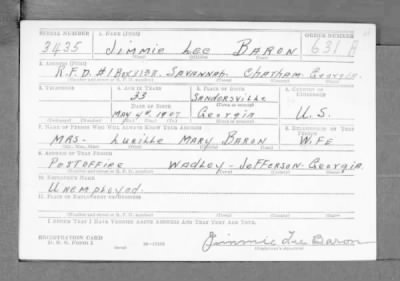 SERIAL NUMBER 1. NAME (Print) ORDER NUMBER
3435 JIMMIE LEE BARON 631 A
2. ADDRESS (Print)
R.F.D. #1 Box 113R. SAVANNAH CHATHAM GEORGIA
3. TELEPHONE 4. AGE IN YEARS 5. PLACE OF BIRTH 6. COUNTRY OF CITIZENSHIP
33 SANDERSVILLE
DATE OF BIRTH
MAY 4th 1907 GEORGIA U.S.
7. NAME OF PERSON WHO WILL ALWAYS KNOW YOUR ADDRESS 8. RELATIONSHIP OF THAT PERSON
MRS- LUCILLE MARY BARON WIFE
9. ADDRESS OF THAT PERSON
POSTOFFICE WADLEY - JEFFERSON - GEORGIA
10. EMPLOYER'S NAME
UNEMPLOYED.
11. PLACE OF EMPLOYMENT OR BUSINESS
I AFFIRM THAT I HAVE VERIFIED ABOVE ANSWERS AND THAT THEY ARE TRUE.
REGISTRATION CARD
D. S. S. Form 1
Jimmie Lee Baron
(Registrant's signature)